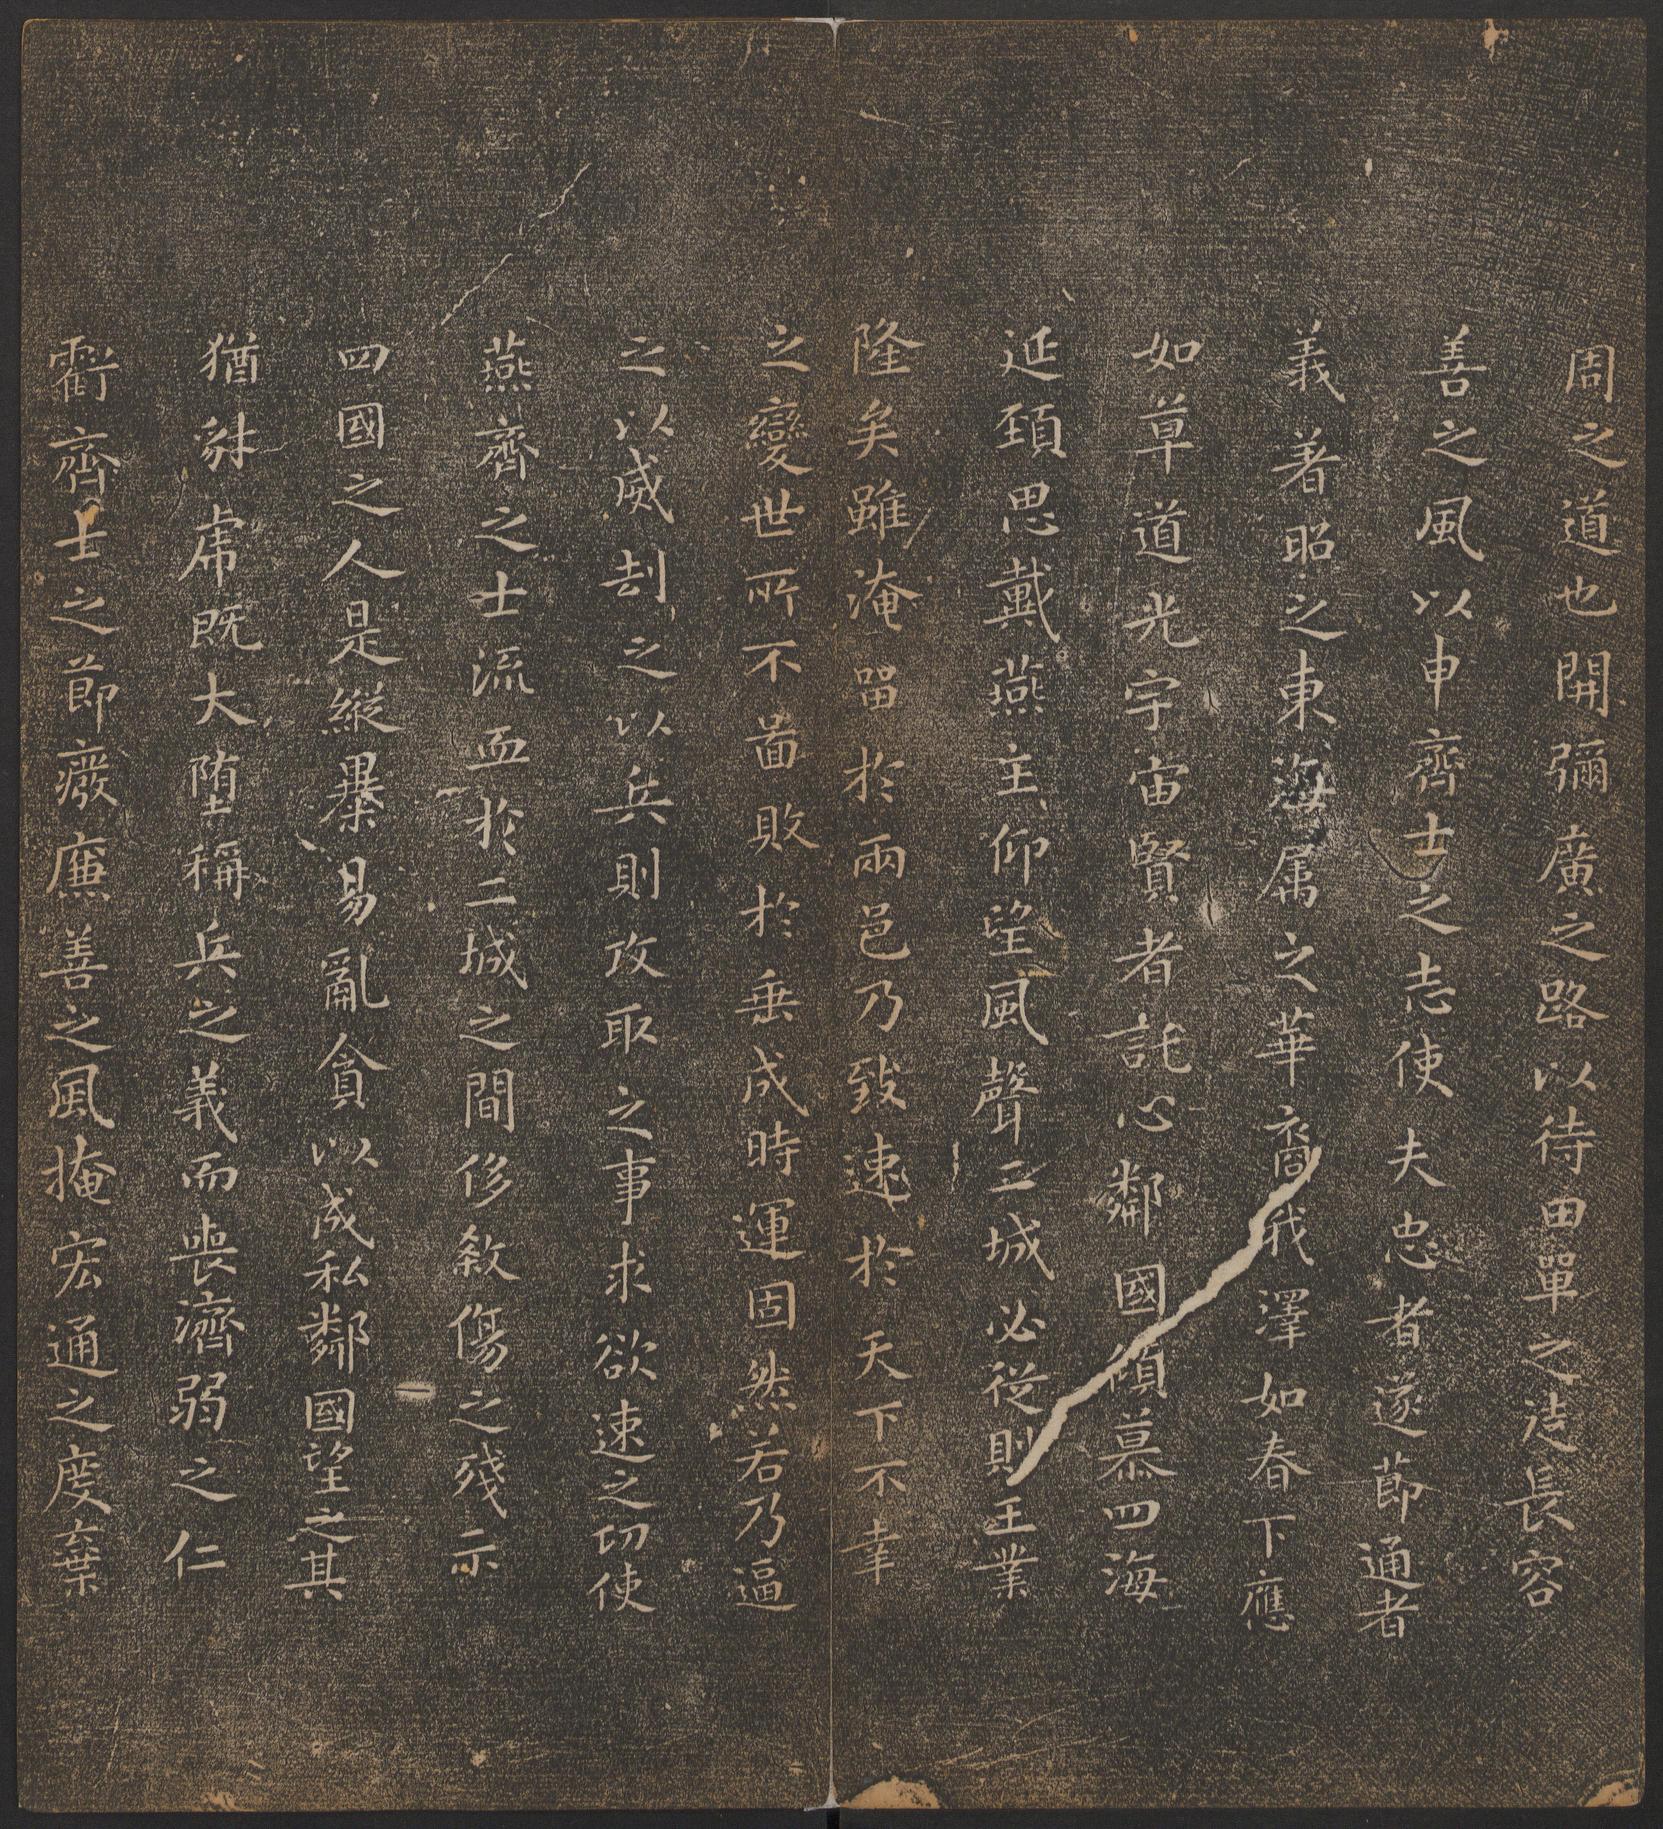 周之道也開彌廣之路以待田單之徒長容
善之風以申齊士之志使夫忠者遂節通者
義著昭之東海属之華裔我澤如春下應
如草道光宇宙賢者託心鄰國傾慕四海
延頸思戴燕主仰望風聲二城必從則王業
隆矣雖淹留於兩邑乃致速於天下不幸
之變世所不啚敗於垂成時運固然若乃逼
之以威刧之以兵則攻取之事求欲速之功使
燕齊之士流血於二城之間侈煞傷之殘示
四國之人是縱暴易亂貪以成私鄰國望之其
猶豺虎既大墮稱兵之義而喪濟弱之仁
虧齊士之節廢廉善之風掩宏通之度棄